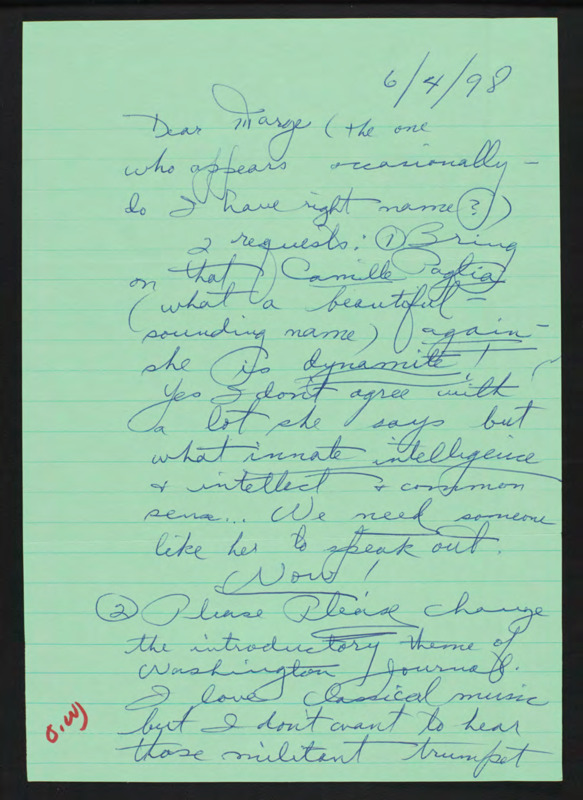 6/4/98
Dear Marge (the one
who appears occasionally –
do I have right name?)
2 requests: ① Bring
on that Camille Paglia
(what a beautiful-
sounding name) again –
she is dynamite!
Yes I don't agree with
a lot she says but
what innate intelligence
& intellect & common
sense... We need someone
like her to speak out.
Now!
② Please Please change
the introductory theme of
Washington Journal.
I love classical music
but I don't want to hear
those militant trumpet